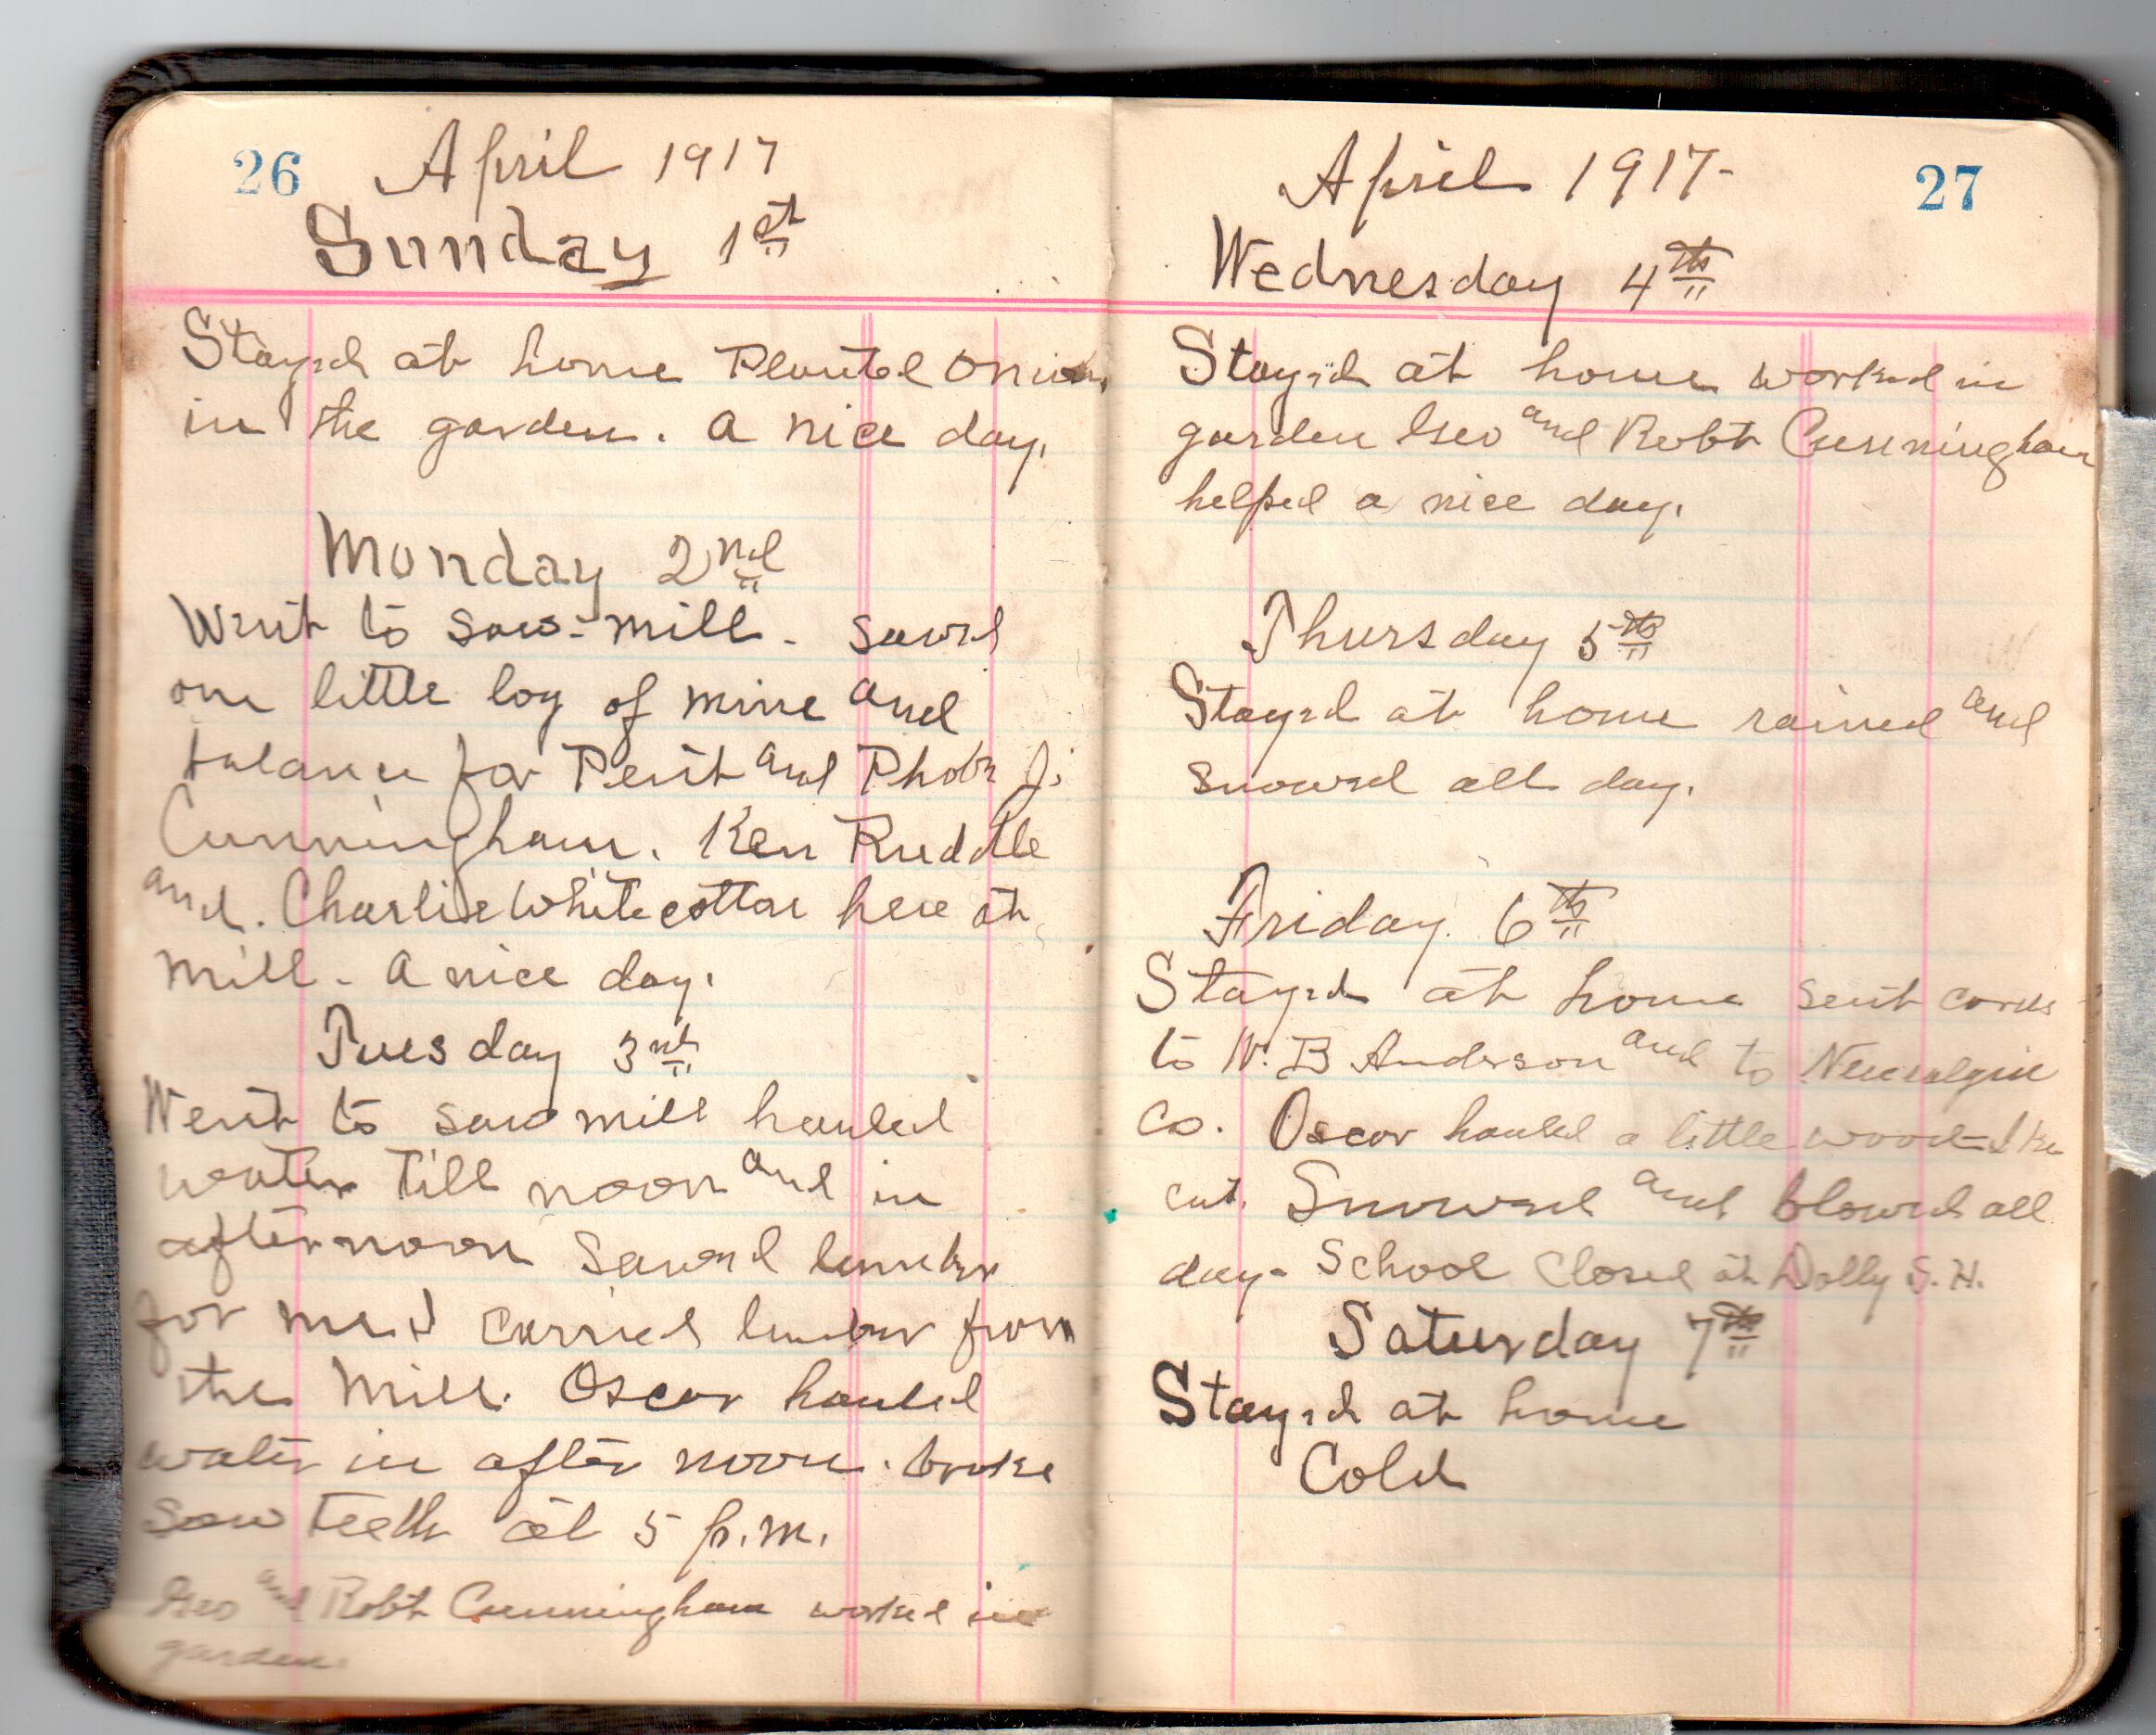 26 April 1917
Sunday 1st
Stayed at home Planted onions
in the garden. a nice day.
Monday 2nd
Went to saw-mill - sawed
one little log of mine and
balance for Perit and Phoebe J.
Cunningham. Ken Ruddle
and. Charlie Whitecotton here at
mill - a nice day.
Tuesday 3rd
Went to saw mill hauled
water till noon and in
afternoon sawed lumber
for me I carried lumber from
the mill. Oscar hauled
water in after noon. broke
saw teeth at 5 p.m.
Geo and Robt Cunningham worked in
garden.
April 1917- 27
Wednesday 4th
Stayed at home worked in
garden Geo and Robt Cunningham
helped a nice day.
Thursday 5th
Stayed at home rained and
snowed all day.
Friday. 6th
Stayed at home sent cards
to W. B Anderson and to Neuralgine
Co. Oscar hauled a little wood Ike
cut. Snowed and blowed all
day- School closed at Dolly S. H.
Saturday 7th
Stayed at home
Cold